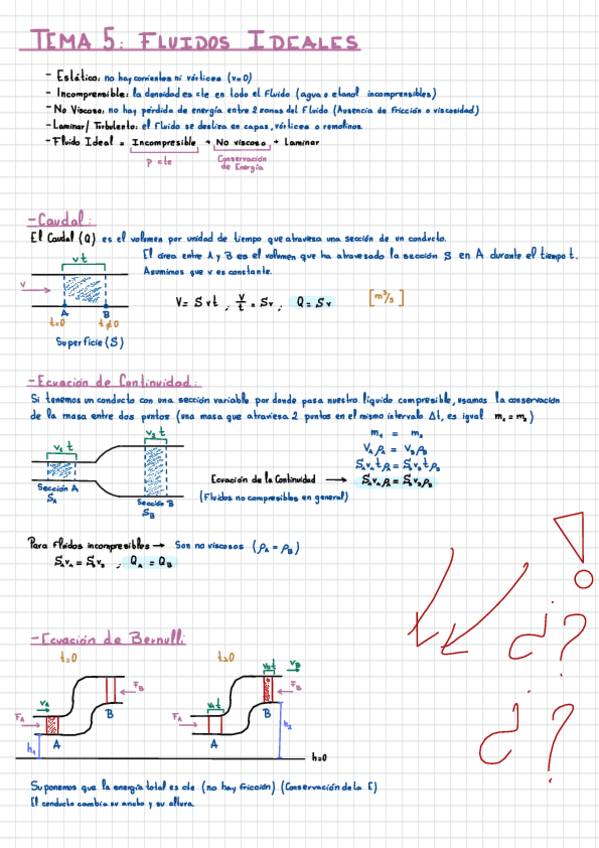 TEMA 5: FLUIDOS IDEALES
- Estático: no hay corrientes ni vórtices (v=0)
- Incomprensible: la densidad es cte en todo el Fluido (agua o etanol incomprensibles)
- No Viscoso: no hay pérdida de energía entre 2 zonas del Fluido (Ausencia de Fricción o viscosidad)
- Laminar/ Turbulento: el Fluido se desliza en capas, vórtices o remolinos.
- Fluido Ideal = Incompresible + No viscoso + Laminar
ρ cte Conservación
de Energía
- Caudal:
El Caudal (Q) es el volumen por unidad de tiempo que atraviesa una sección de un conducto.
El área entre A y B es el volumen que ha atravesado la sección S en A durante el tiempo t.
Asumimos que v es constante.
vt
v
A B
t=0 t≠0
Superficie (S)
V= Svt , V/t = Sv ; Q = Sv [m³/s]
- Ecuación de Continuidad:
Si tenemos un conducto con una sección variable por donde pasa nuestro líquido compresible, usamos la conservación
de la masa entre dos puntos (una masa que atraviesa 2 puntos en el mismo intervalo Δt, es igual m₁ = m₂)
v₁ t
v₂ t
Sección A
S_A
Sección B
S_B
m₁ = m₂
V_A ρ_A = V_B ρ_B
S_A v_A t ρ_A = S_B v_B t ρ_B
Ecuación de la Continuidad → S_A v_A ρ_A = S_B v_B ρ_B
(Fluidos no compresibles en general)
Para Fluidos incompresibles → Son no viscosos (ρ_A = ρ_B)
S_A v_A = S_B v_B , Q_A = Q_B
- Ecuación de Bernulli
t=0 t>0
v_A F_A A B F_B h₁
F_A v_A t A v_B t v_B F_B B h₂
h=0
Suponemos que la energía total es cte (no hay fricción) (Conservación de la E)
El conducto cambia su ancho y su altura.
!
¿?
¿?